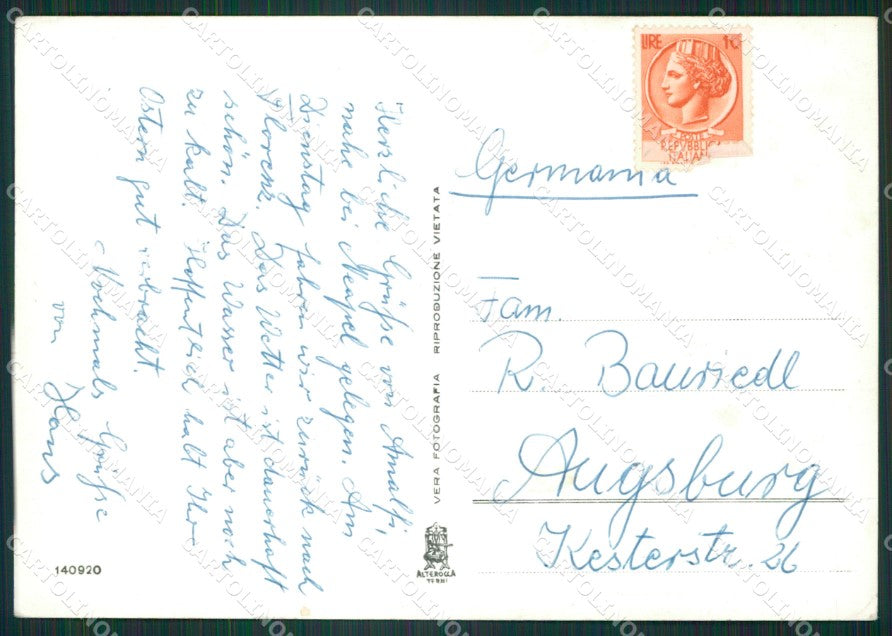 Herzliche Grüße von Amalfi,
nahe bei Neapel gelegen. Am
Dienstag fahren wir zurück nach
Florenz. Das Wetter ist dauerhaft
schön. Das Wasser ist aber noch
zu kalt. Hoffentlich habt Ihr
Ostern gut verbracht.
Nochmals Grüße
von Hans
140920
VERA FOTOGRAFIA RIPRODUZIONE VIETATA
ALTEROCCA
TERNI
LIRE 10
POSTE
REPVBBLIC
ITALIAN
Germania
Fam.
R. Bauriedl
Augsburg
Kesterstr. 26
CARTOLINOMANIA